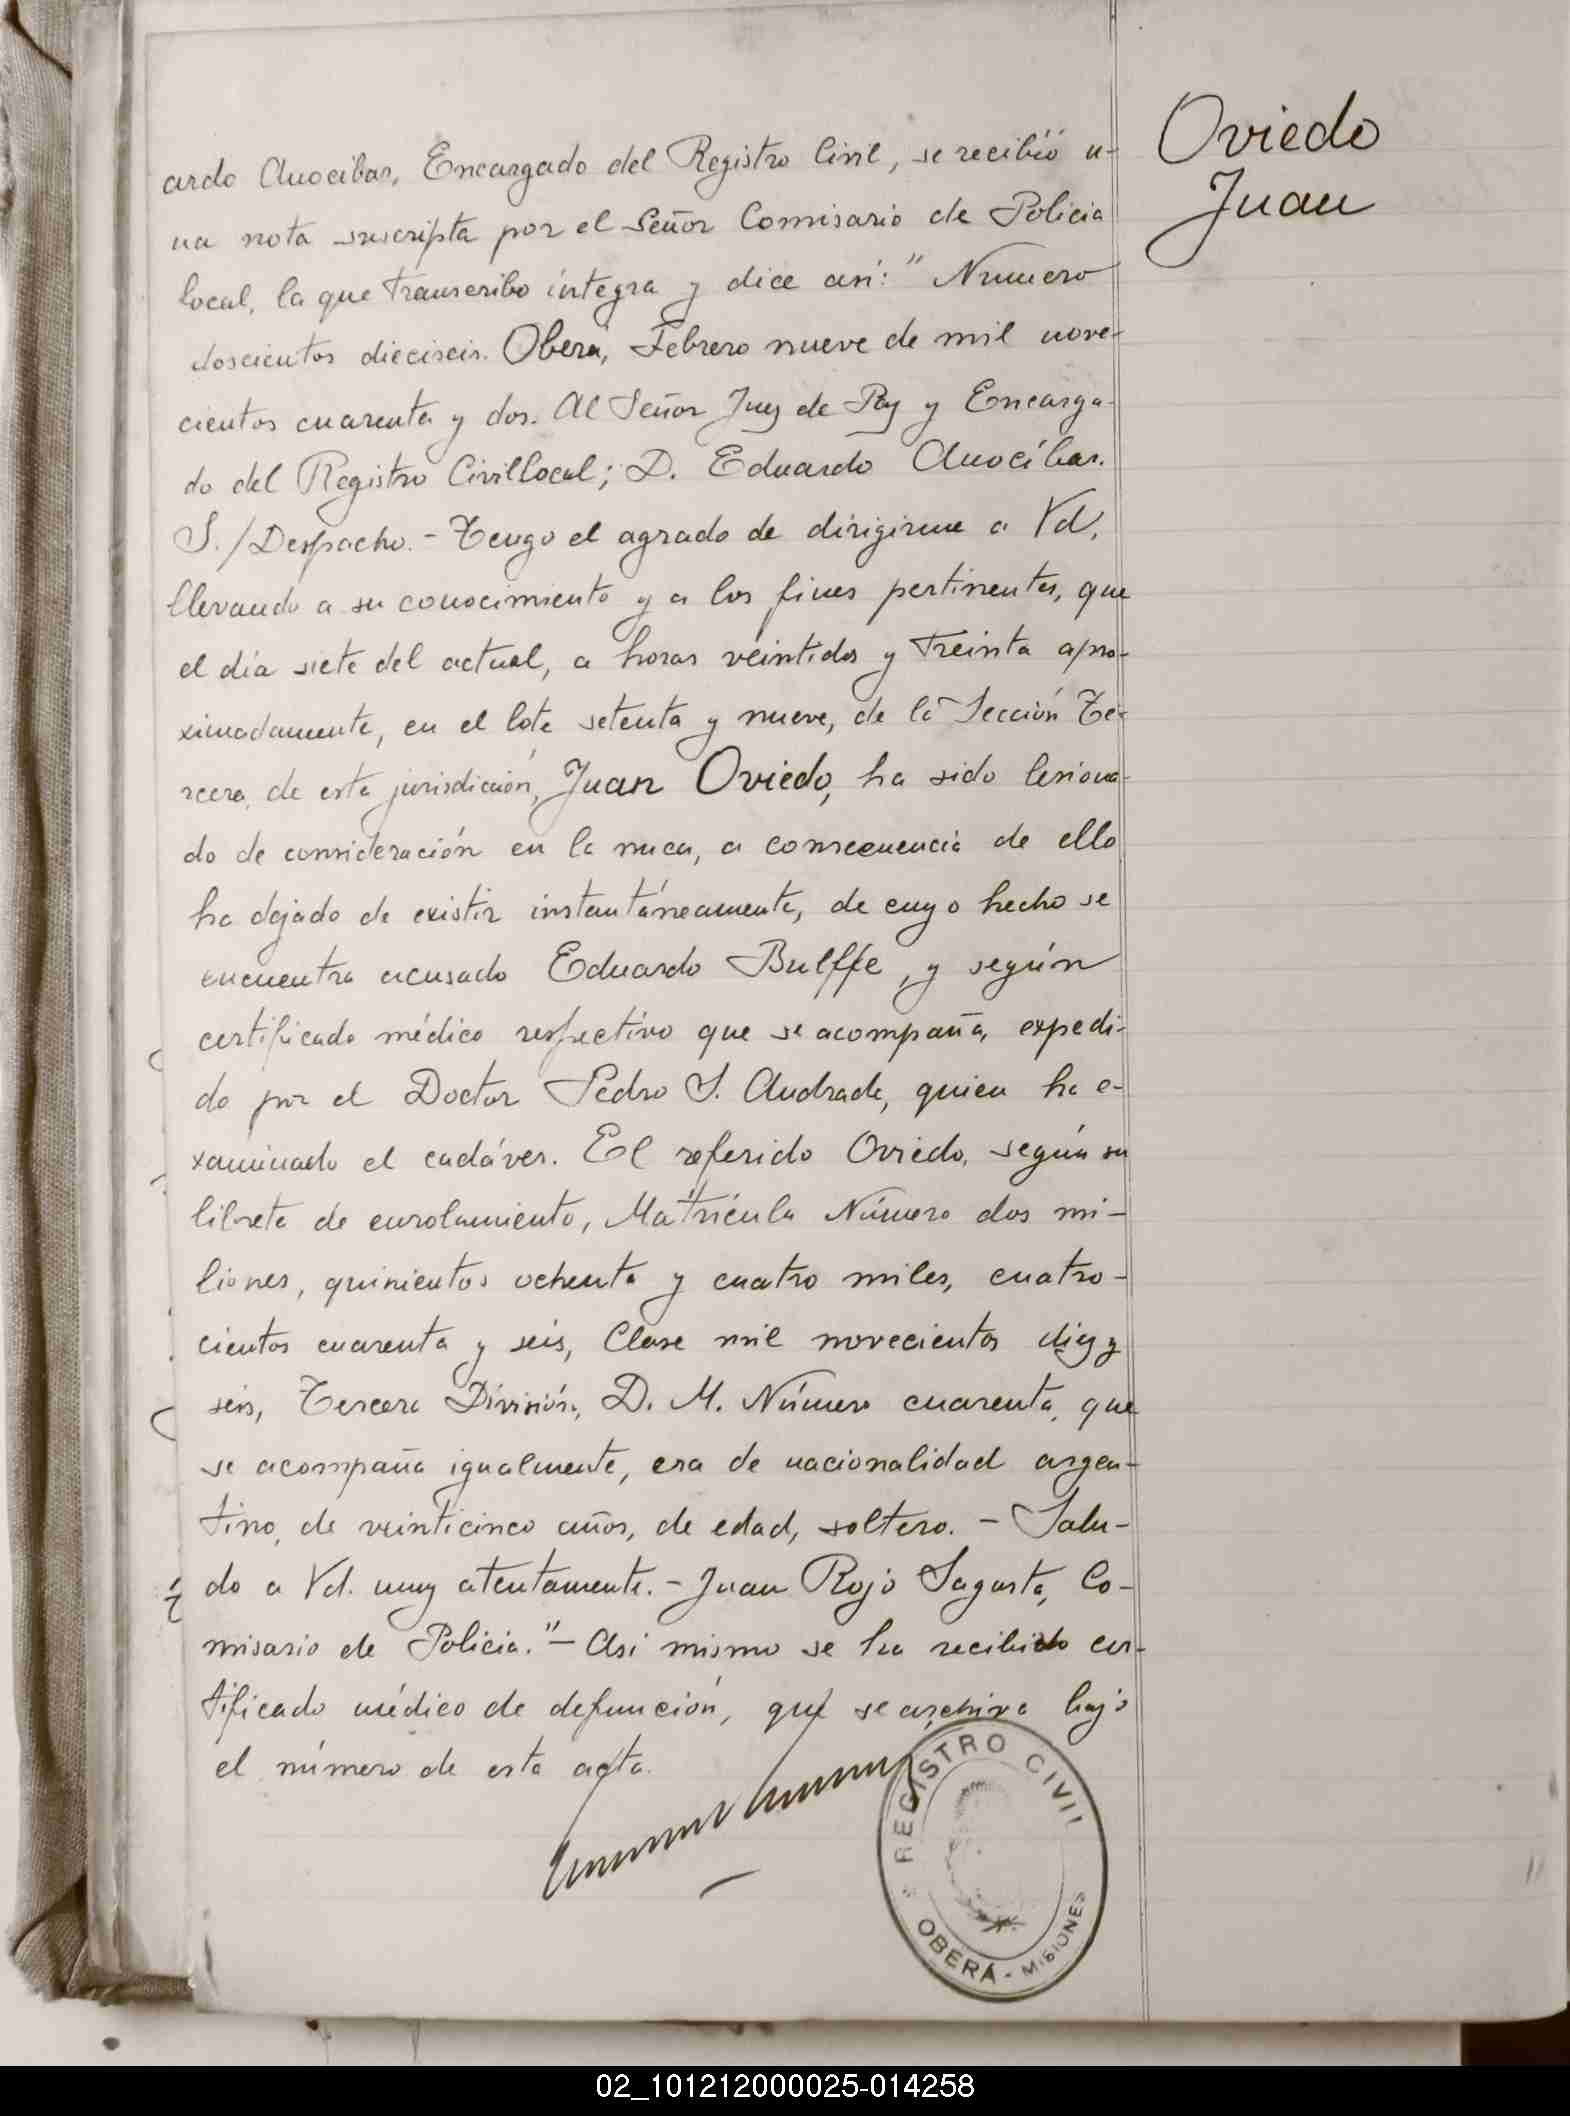 ardo Anocibar, Encargado del Registro Civil, se recibió u-
na nota suscripta por el Señor Comisario de Policia
local, la que transcribo íntegra y dice así: " Numero
doscientos dieciseis. Oberá, Febrero nueve de mil nove-
cientos cuarenta y dos. Al Señor Juez de Paz y Encarga-
do del Registro Civil local; D. Eduardo Anocíbar.
S./Despacho. - Tengo el agrado de dirigirme a Vd.
llevando a su conocimiento y a los fines pertinentes, que
el día siete del actual, a horas veintidos y treinta apro-
ximadamente, en el lote setenta y nueve, de la Sección Te-
rcera, de esta jurisdicción, Juan Oviedo, ha sido lesiona-
do de consideración en la nuca, a consecuencia de ello
ha dejado de existir instantáneamente, de cuyo hecho se
encuentra acusado Eduardo Bulffe, y según
certificado médico respectivo que se acompaña, expedi-
do por el Doctor Pedro S. Andrade, quien ha e-
xaminado el cadáver. El referido Oviedo, según su
libreta de enrolamiento, Matrícula Número dos mi-
llones, quinientos ochenta y cuatro miles, cuatro-
cientos cuarenta y seis, Clase mil novecientos diez y
seis, Tercera División, D. M. Número cuarenta, que
se acompaña igualmente, era de nacionalidad argen-
tino, de veinticinco años, de edad, soltero. - Salu-
do a Vd. muy atentamente. - Juan Rojo Sagasta, Co-
misario de Policia." - Asi mismo se ha recibido cer-
tificado médico de defunción, que se archiva bajo
el número de esta acta.
Oviedo
Juan
REGISTRO CIVIL
OBERÁ - MISIONES
02_101212000025-014258